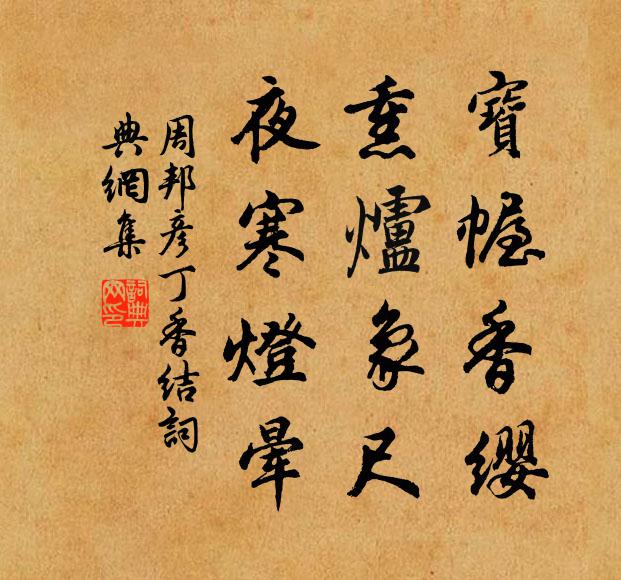 寶幄香纓
熏爐象尺
夜寒燈暈
周邦彥丁香結詞
典網集
詞典網印